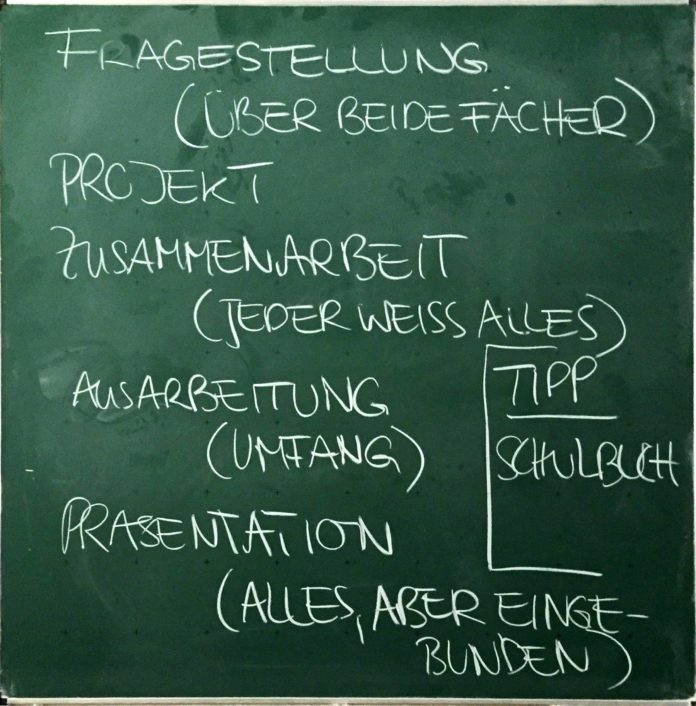 FRAGESTELLUNG
(ÜBER BEIDE FÄCHER)
PROJEKT
ZUSAMMENARBEIT
(JEDER WEISS ALLES)
TIPP
AUSARBEITUNG
(UMFANG)
SCHULBUCH
PRÄSENTATION
(ALLES, ABER EINGE-
BUNDEN)